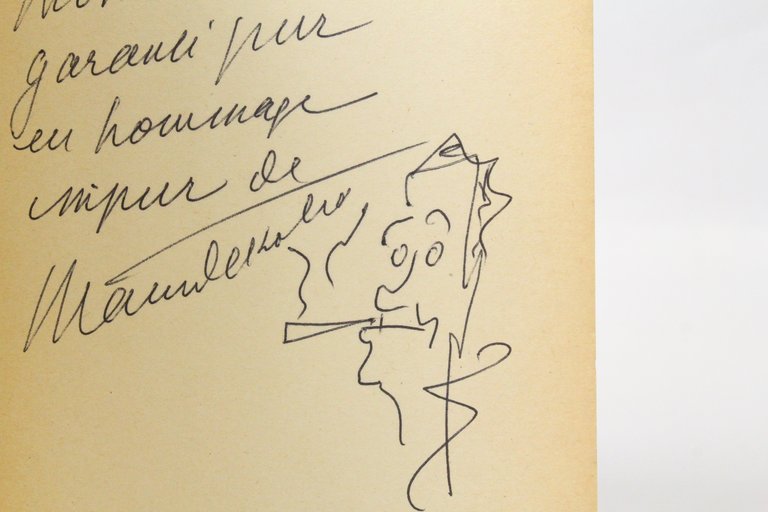 garanti pur
en hommage
impur de